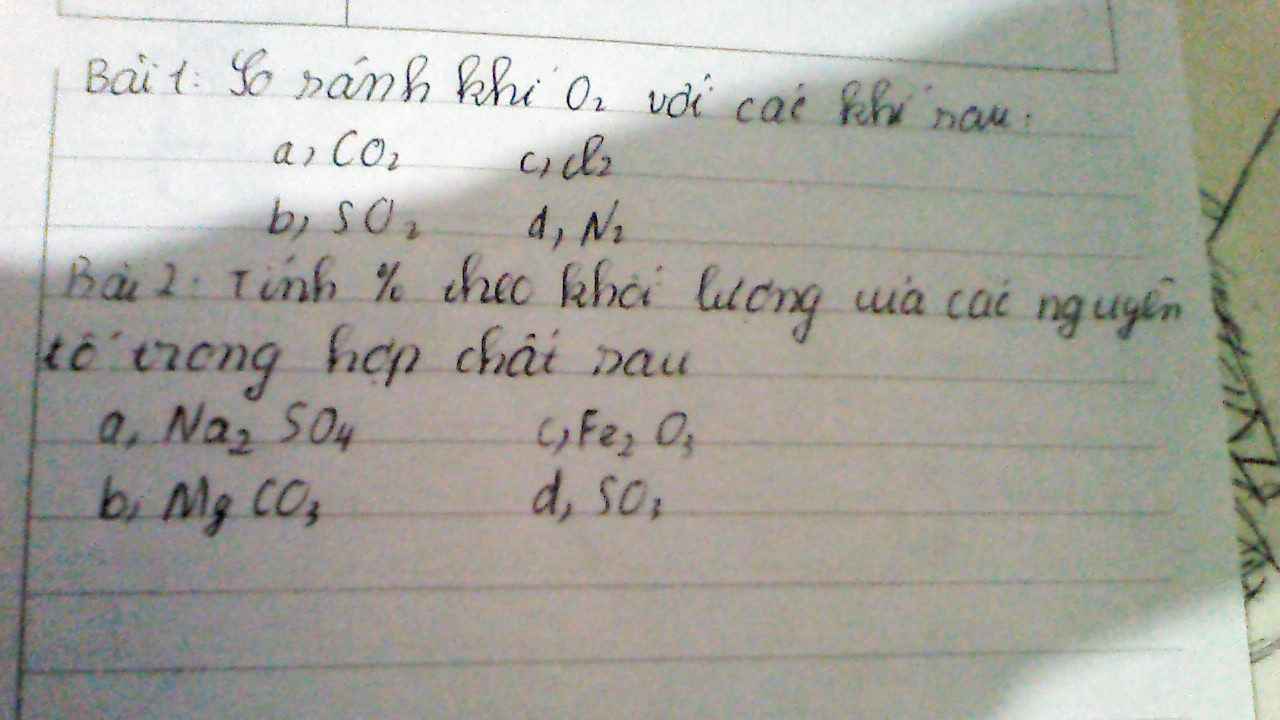 Bài 1: So sánh khí O₂ với các khí sau:
a, CO₂ c, Cl₂
b, SO₂ d, N₂
Bài 2: Tính % theo khối lượng của các nguyên
tố trong hợp chất sau
a, Na₂ SO₄ c, Fe₂ O₃
b, Mg CO₃ d, SO₃